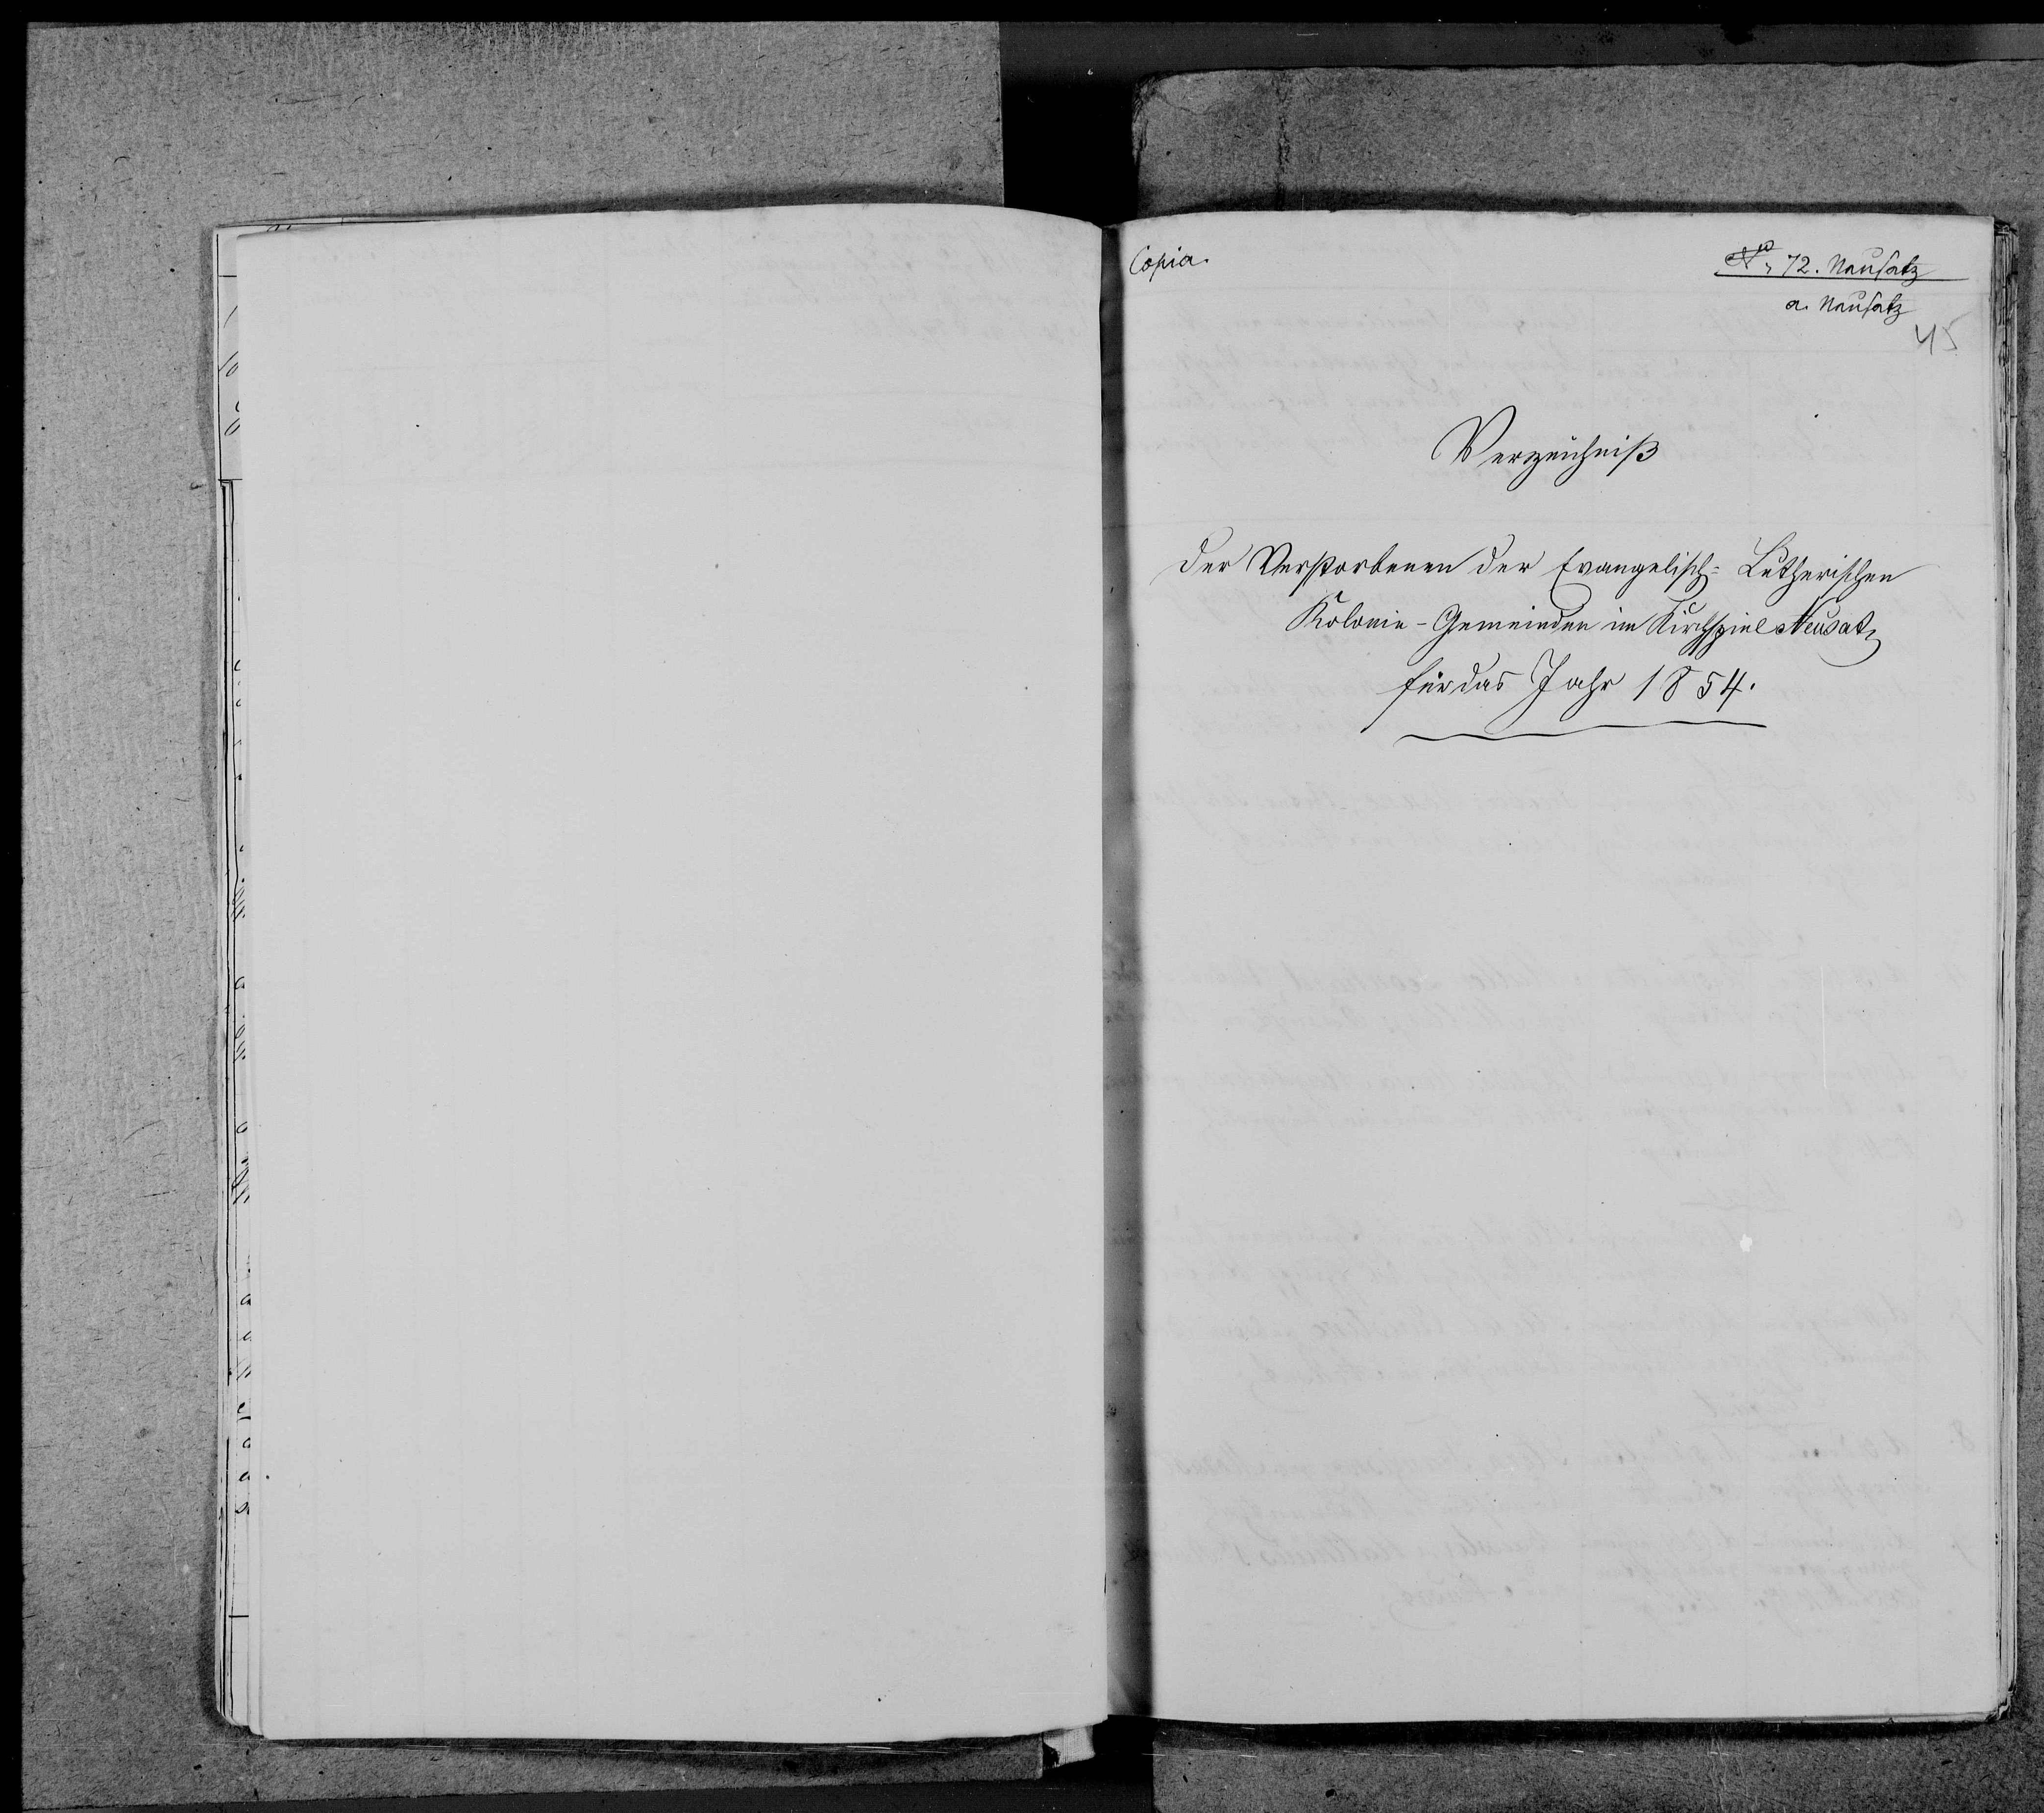 Copia.
No. 72. Neusatz
a. Neusatz
45
Verzeichniß
der Verstorbenen der Evangelisch= Lutherischen
Kolonie-Gemeinden im Kirchspiel Neusatz
für das Jahr 1854.